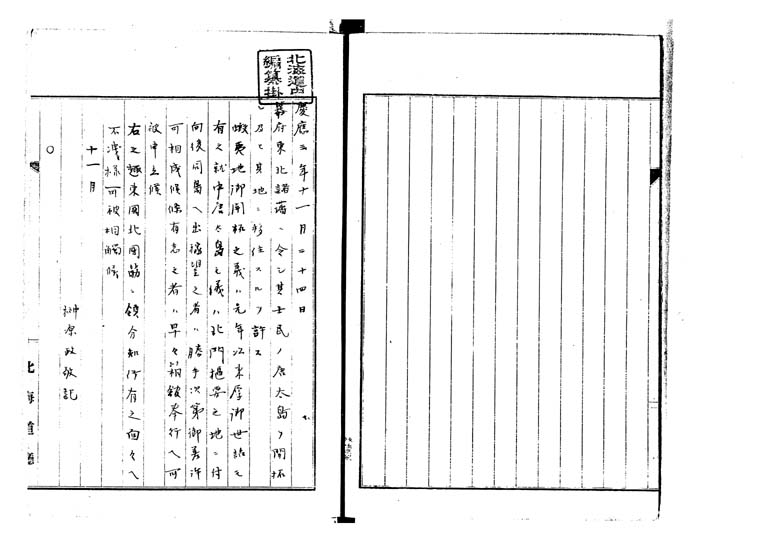 北海道史
編纂掛
慶應三年十一月二十四日
幕府東北諸藩ニ令シ其士民ノ唐太島ヲ開拓
及ヒ其地ニ移住スルヲ許ス
蝦夷地御開拓之義ハ元年以来厚御世話も
有之就中唐太島之儀ハ北門樞要之地ニ付
向後同島へ出稼望之者ハ勝手次第御差許
可相成候條有志之者ハ早々箱館奉行へ可
被申立候
右之趣東國北國筋ニ領分知行有之面々へ
不洩様可被相觸候
十一月
榊原政敬記
○
北海道廳